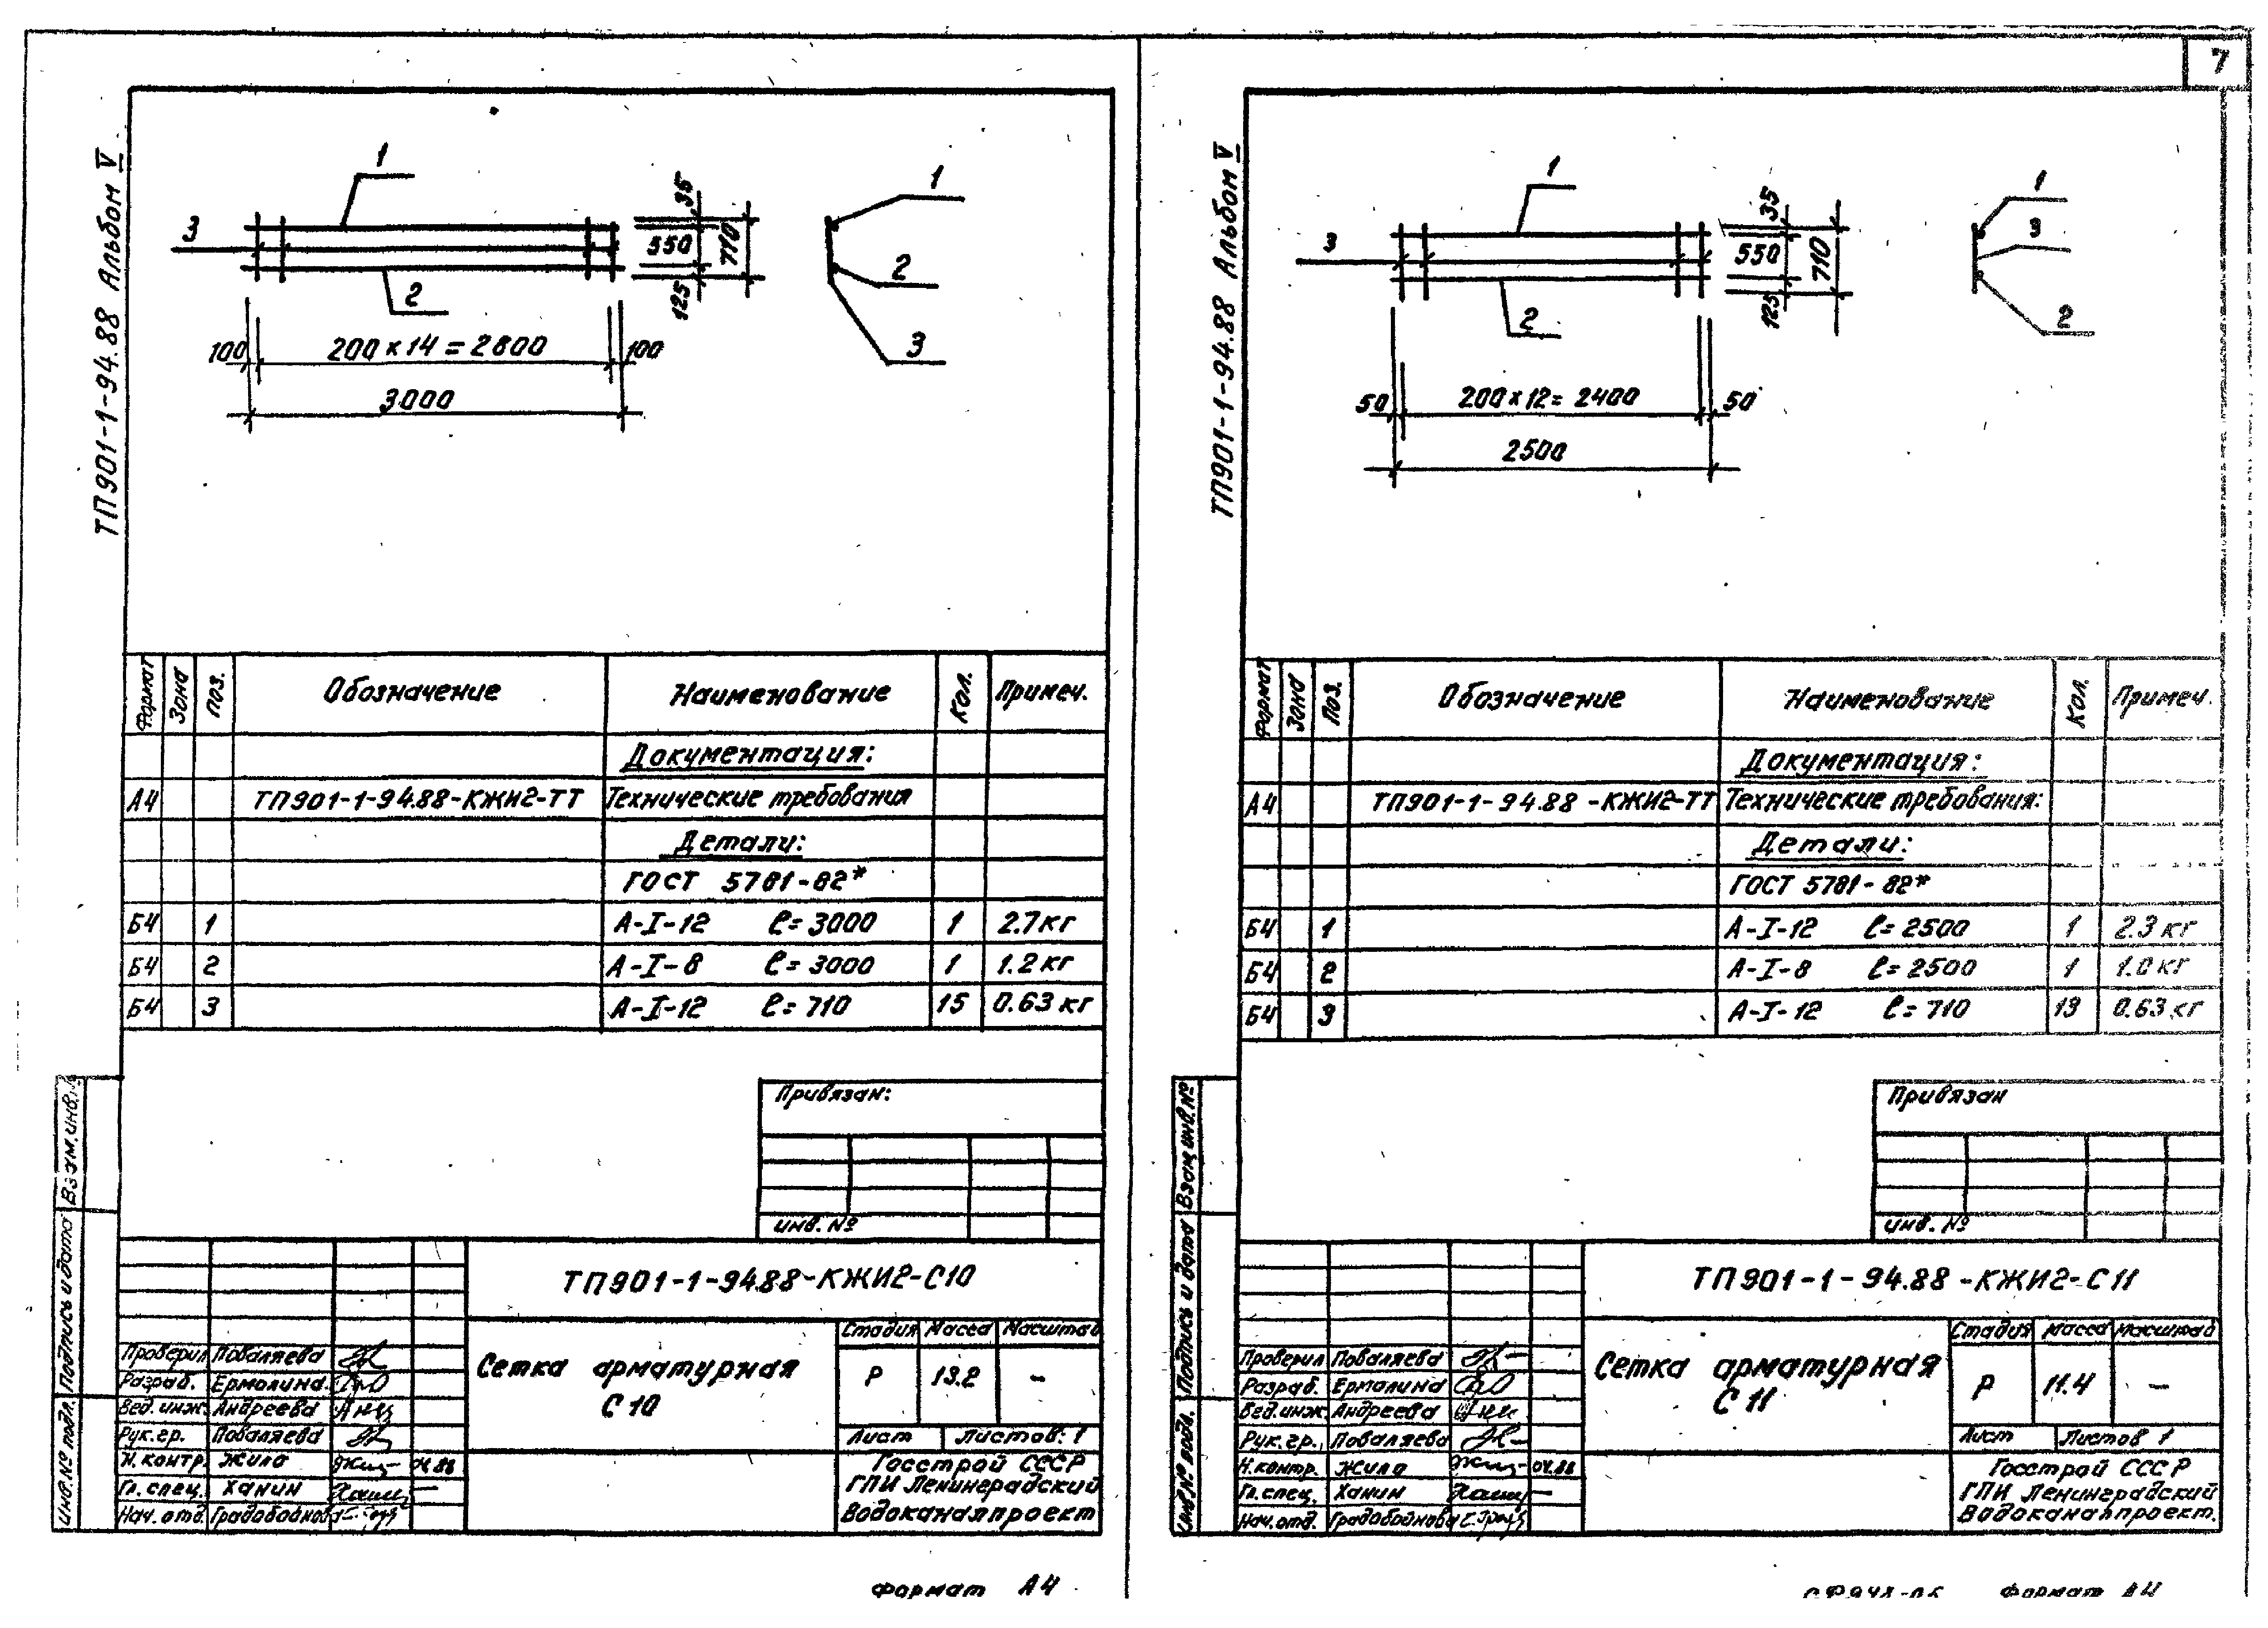 7
ТП901-1-94.88 Альбом V
1
3
2
35
550
125
710
1
2
3
100
200 х 14 = 2800
100
3000
Формат Зона Поз. Обозначение Наименование Кол. Примеч.
Документация:
А4 ТП901-1-94.88-КЖИ2-ТТ Технические требования
Детали:
ГОСТ 5781-82*
Б4 1 А-I-12 ℓ=3000 1 2.7кг
Б4 2 А-I-8 ℓ=3000 1 1.2кг
Б4 3 А-I-12 ℓ=710 15 0.63 кг
Привязан:
инв. №
Взам.инв.№
Подпись и дата
Инв.№ подл.
ТП901-1-94.88-КЖИ2-С10
Стадия Масса Масштаб
Сетка арматурная
С 10
Р 13.2 –
Лист Листов: 1
Проверил Поваляева
Разраб. Ермолина
Вед. инж. Андреева
Рук.гр. Поваляева
Н.контр. Жила 04.88
Гл.спец. Ханин
Нач.отд. Градобойнова
Госстрой СССР
ГПИ Ленинградский
Водоканалпроект
Формат А4
ТП901-1-94.88 Альбом V
1
3
2
35
550
125
710
1
3
2
50
200 х 12 = 2400
50
2500
Формат Зона Поз. Обозначение Наименование Кол. Примеч.
Документация:
А4 ТП901-1-94.88-КЖИ2-ТТ Технические требования:
Детали:
ГОСТ 5781-82*
Б4 1 А-I-12 ℓ=2500 1 2.3 кг
Б4 2 А-I-8 ℓ=2500 1 1.0 кг
Б4 3 А-I-12 ℓ=710 13 0.63 кг
Привязан
инв. №
Взам.инв.№
Подпись и дата
Инв.№ подл.
ТП901-1-94.88-КЖИ2-С11
Стадия Масса Масштаб
Сетка арматурная
С 11
Р 11.4 –
Лист Листов 1
Проверил Поваляева
Разраб. Ермолина
Вед.инж. Андреева
Рук.гр. Поваляева
Н.контр. Жила 04.88
Гл.спец. Ханин
Нач.отд. Градобойнова
Госстрой СССР
ГПИ Ленинградский
Водоканалпроект.
Формат А4